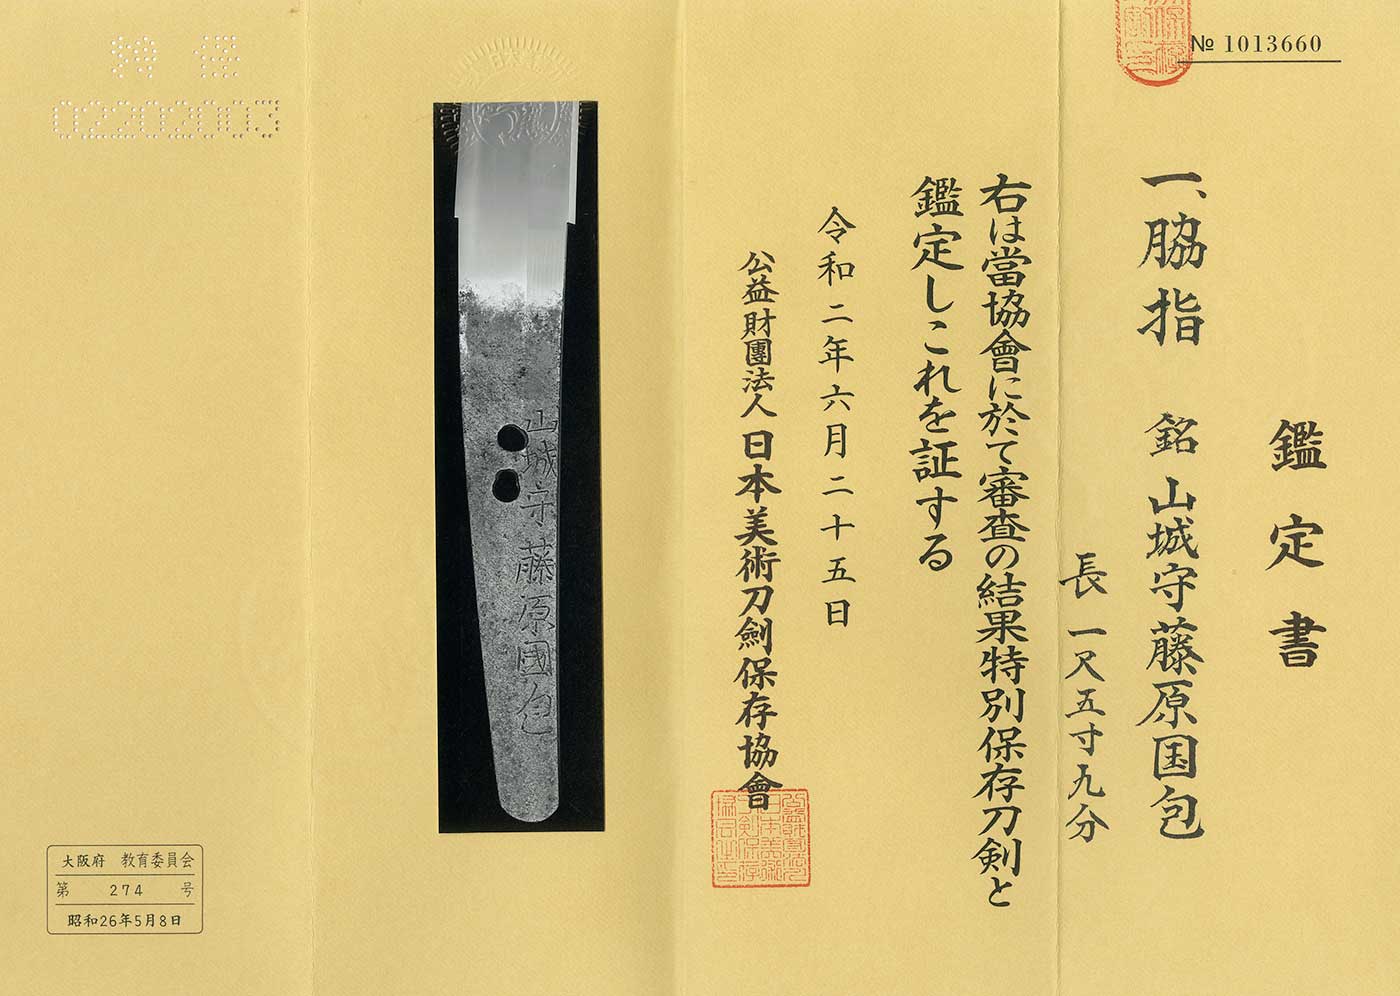 № 1013660
鑑定書
一、脇指 銘 山城守藤原国包
長 一尺五寸九分
右は當協會に於て審査の結果特別保存刀剣と
鑑定しこれを証する
令和二年六月二十五日
公益財團法人 日本美術刀劍保存協會
山城守藤原國包
特保
02202003
大阪府 教育委員会
第 274 号
昭和26年5月8日